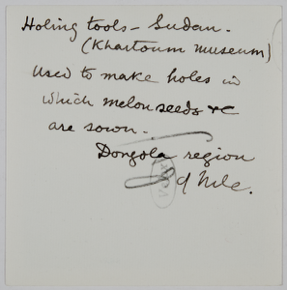 Holing tools - Sudan.
(Khartoum Museum)
Used to make holes in
which melon seeds &C
are sown.
Dongola region
of Nile.